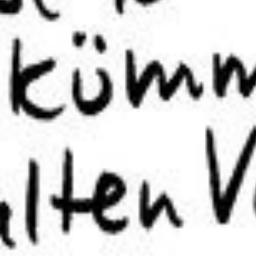 kümm
lten V